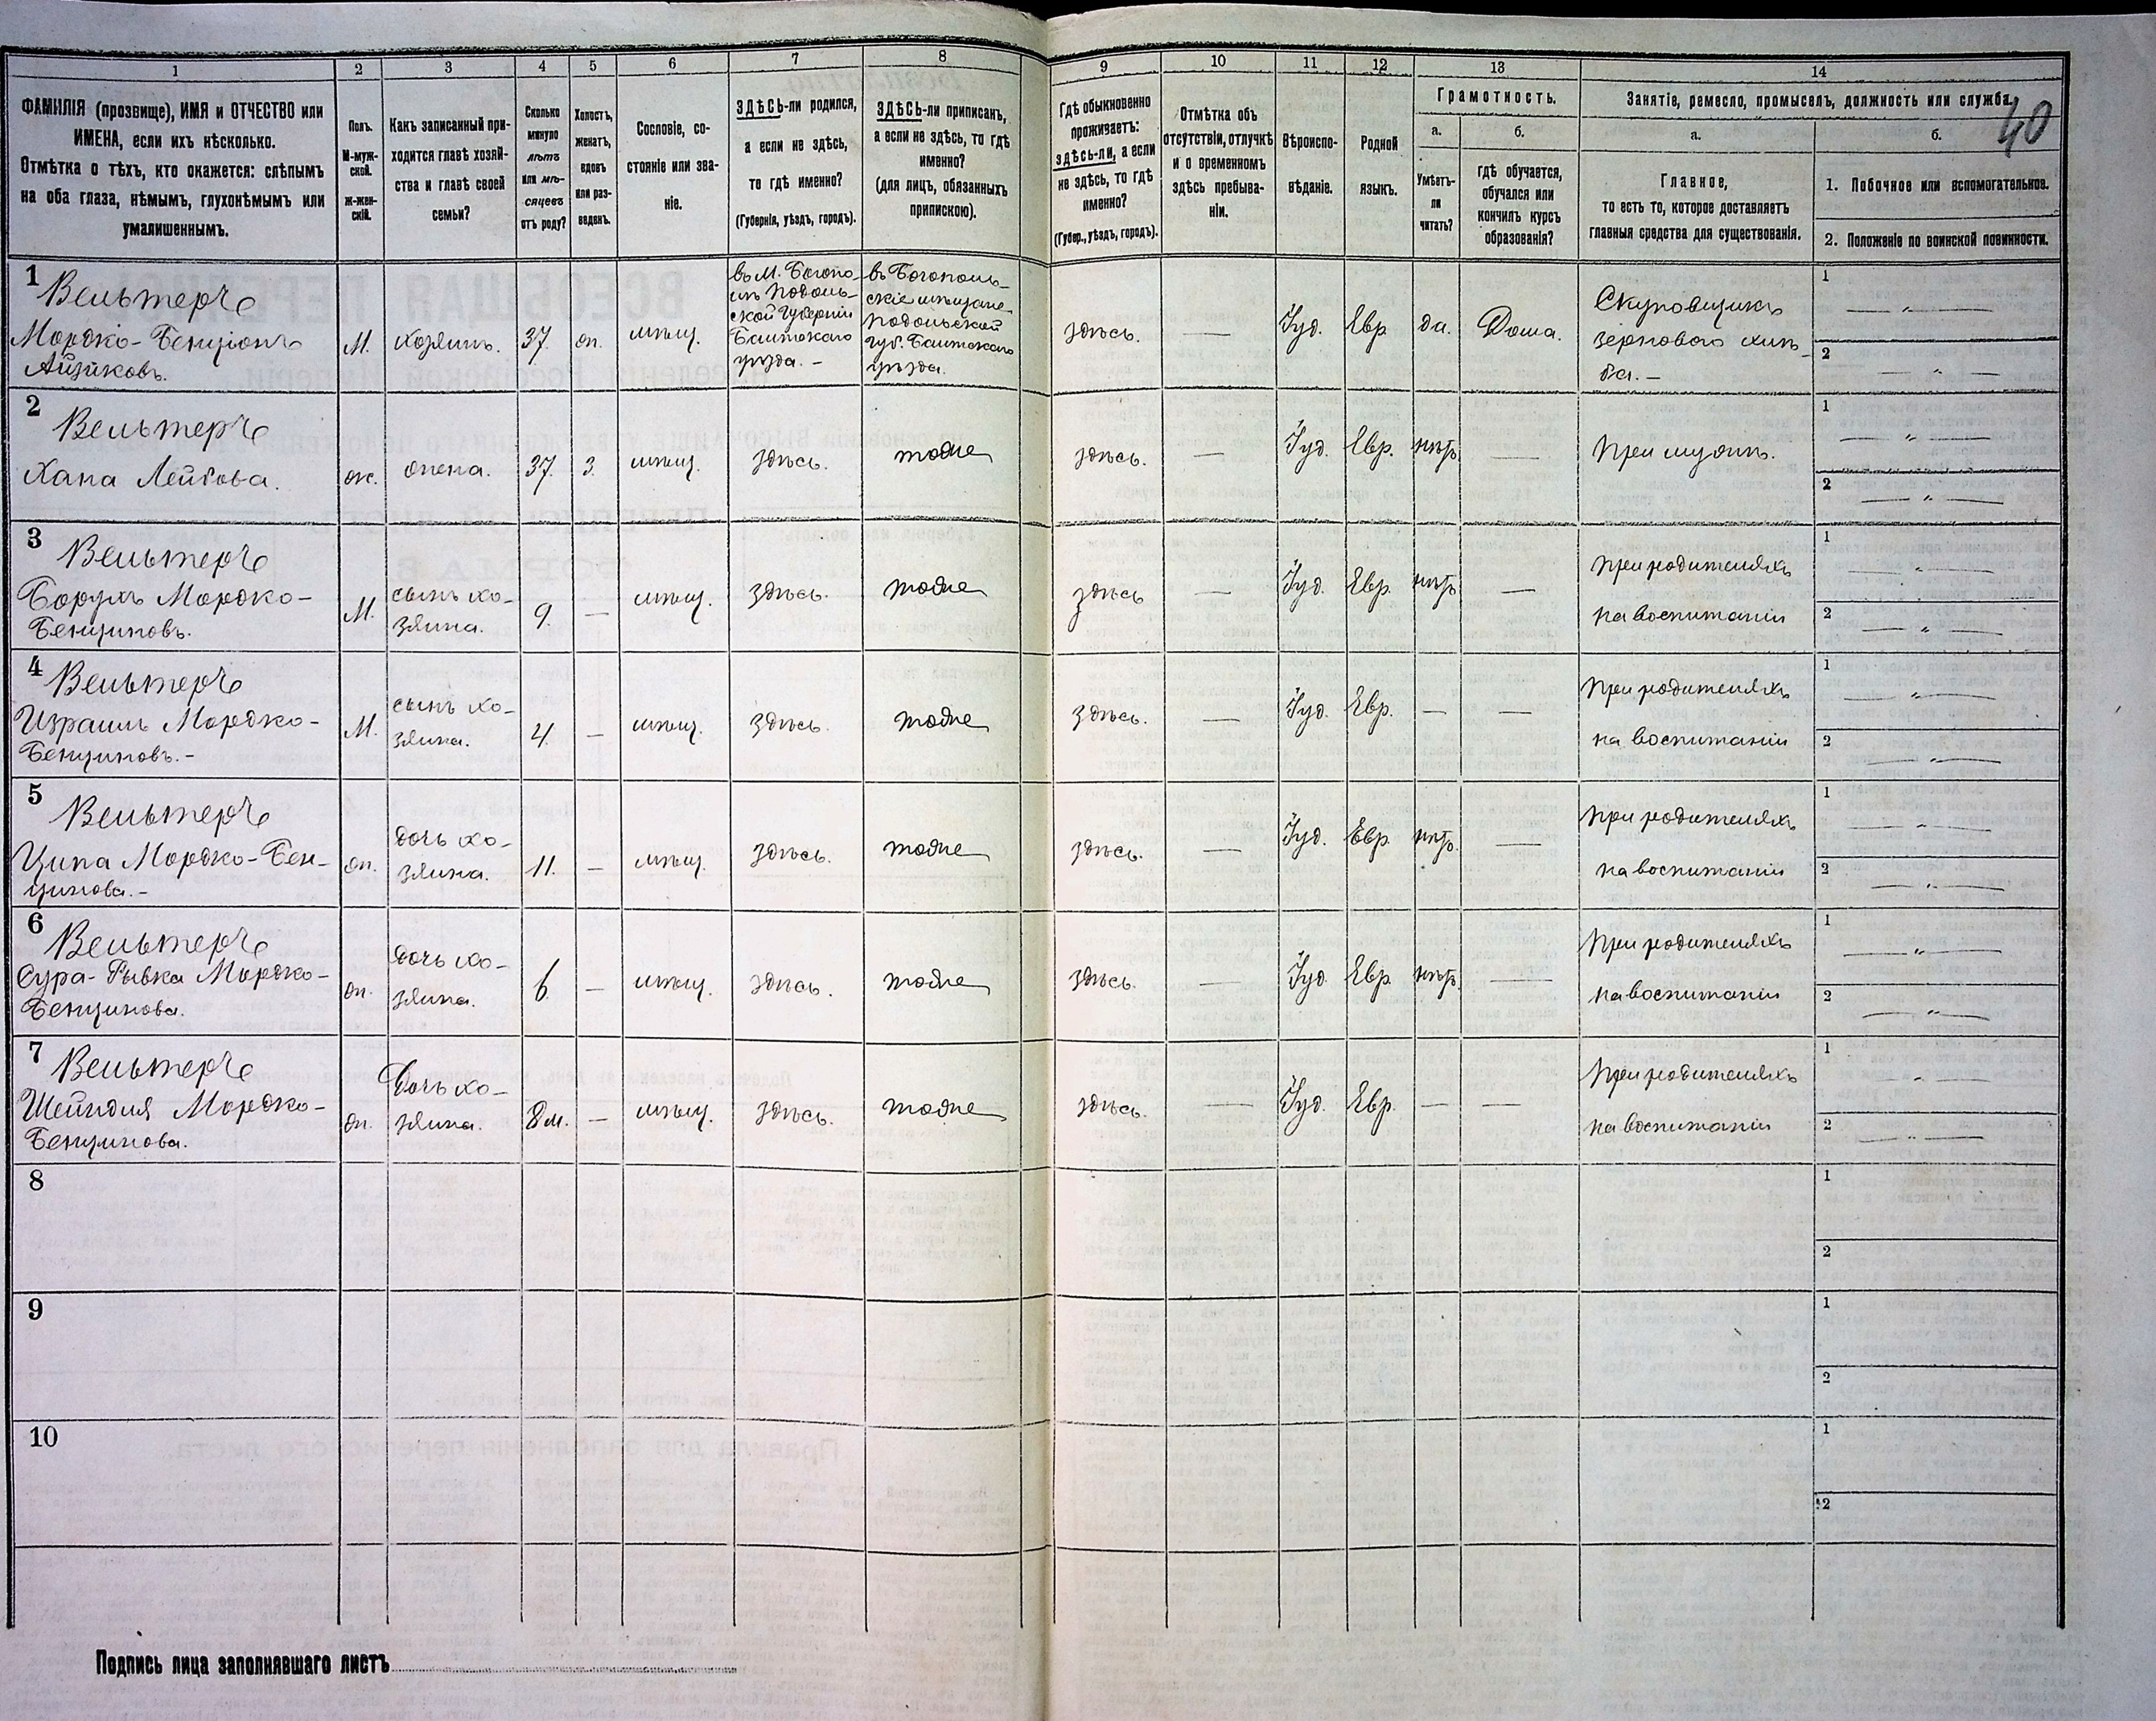 1 2 3 4 5 6 7 8 9 10 11 12 13 14
40
ФАМИЛІЯ (прозвище), ИМЯ и ОТЧЕСТВО или
ИМЕНА, если ихъ нѣсколько.
Отмѣтка о тѣхъ, кто окажется: слѣпымъ
на оба глаза, нѣмымъ, глухонѣмымъ или
умалишеннымъ.
Полъ.
М-муж-
ской.
Ж-жен-
скій.
Какъ записанный при-
ходится главѣ хозяй-
ства и главѣ своей
семьи?
Сколько
минуло
лѣтъ
или мѣ-
сяцевъ
отъ роду?
Холостъ,
женатъ,
вдовъ
или раз-
веденъ.
Сословіе, со-
стояніе или зва-
ніе.
ЗДѢСЬ-ли родился,
а если не здѣсь,
то гдѣ именно?
(Губернія, уѣздъ, городъ).
ЗДѢСЬ-ли приписанъ,
а если не здѣсь, то гдѣ
именно?
(для лицъ, обязанныхъ
припискою).
Гдѣ обыкновенно
проживаетъ:
здѣсь-ли, а если
не здѣсь, то гдѣ
именно?
(Губер., уѣздъ, городъ).
Отмѣтка объ
отсутствіи, отлучкѣ
и о временномъ
здѣсь пребыва-
ніи.
Вѣроиспо-
вѣданіе.
Родной
языкъ.
Грамотность.
а.
Умѣетъ-
ли
читать?
б.
гдѣ обучается,
обучался или
кончилъ курсъ
образованія?
Занятіе, ремесло, промыселъ, должность или служба.
а.
Главное,
то есть то, которое доставляетъ
главныя средства для существованія.
б.
1. Побочное или вспомогательное.
2. Положеніе по воинской повинности.
1
Вельтеръ
Мордко-Бенціонъ
Айзиковъ.
М.
хозяинъ.
37.
ж.
мѣщ.
въ М. Богопо-
лѣ Подоль-
ской Губерніи
Балтскаго
уѣзда. –
въ Богополь-
скіе мѣщане
Подольской
губ. Балтскаго
уѣзда.
здѣсь.
—
Іуд.
Евр
да.
Дома.
Скуповщикъ
зернового хлѣ-
ба. –
1 — " —
2 — " —
2
Вельтеръ
Хана Лейбова.
ж.
жена.
37.
З.
мѣщ.
здѣсь.
тоже
здѣсь.
—
Іуд.
Евр.
нѣтъ
—
При мужѣ.
1 — " —
2 — " —
3
Вельтеръ
Борухъ Мордко-
Бенціоновъ.
М.
сынъ хо-
зяина.
9.
—
мѣщ.
здѣсь.
тоже
здѣсь
—
Іуд.
Евр.
нѣтъ
—
При родителяхъ
на воспитаніи
1 — " —
2 — " —
4
Вельтеръ
Израиль Мордко-
Бенціоновъ. –
М.
сынъ хо-
зяина.
4.
—
мѣщ.
здѣсь.
тоже
здѣсь.
—
Іуд.
Евр.
—
—
При родителяхъ
на воспитаніи
1 — " —
2 — " —
5
Вельтеръ
Ципа Мордко-Бен-
ціонова. –
ж.
дочь хо-
зяина.
11.
—
мѣщ.
здѣсь.
тоже
здѣсь.
—
Іуд.
Евр.
нѣтъ.
—
При родителяхъ
на воспитаніи
1 — " —
2 — " —
6
Вельтеръ
Сура-Рывка Мордко-
Бенціонова.
ж.
дочь хо-
зяина.
6.
—
мѣщ.
здѣсь.
тоже
здѣсь.
—
Іуд.
Евр.
нѣтъ.
—
При родителяхъ
на воспитаніи
1 — " —
2 — " —
7
Вельтеръ
Шейндля Мордко-
Бенціонова.
ж.
Дочь хо-
зяина.
8 м.
—
мѣщ.
здѣсь.
тоже
здѣсь.
—
Іуд.
Евр.
—
—
При родителяхъ
на воспитаніи
1 — " —
2 — " —
8
1
2
9
1
2
10
1
2
Подпись лица заполнявшаго листъ